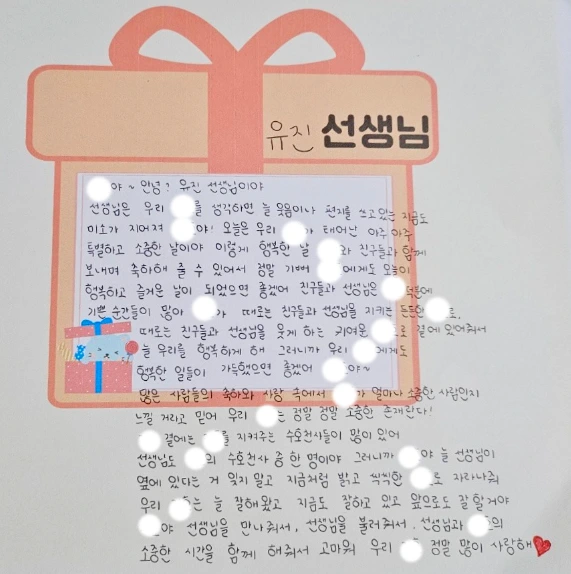 유진 선생님
야 ~ 안녕? 유진 선생님이야
선생님은 우리 를 생각하면 늘 웃음이나 편지를 쓰고있는 지금도
미소가 지어져 야! 오늘은 우리 가 태어난 아주 아주
특별하고 소중한 날이야 이렇게 행복한 날 와 친구들과 함께
보내며 축하해 줄 수 있어서 정말 기뻐 에게도 오늘이
행복하고 즐거운 날이 되었으면 좋겠어 친구들과 선생님은 덕분에
기쁜 순간들이 많아 가 때로는 친구들과 선생님을 지키는 든든한 로,
때로는 친구들과 선생님을 웃게 하는 귀여운 으로 곁에 있어줘서
늘 우리를 행복하게 해 그러니까 우리 에게도
행복한 일들이 가득했으면 좋겠어 야~
많은 사람들의 축하와 사랑 속에서 가 얼마나 소중한 사람인지
느낄 거라고 믿어 우리 는 정말 정말 소중한 존재란다!
곁에는 를 지켜주는 수호천사들이 많이 있어
선생님도 의 수호천사 중 한 명이야 그러니까 야 늘 선생님이
옆에 있다는 거 잊지 말고 지금처럼 밝고 씩씩한 로 자라나줘
우리 는 늘 잘해왔고 지금도 잘하고 있고 앞으로도 잘 할거야
야 선생님을 만나줘서, 선생님을 불러줘서, 선생님과 의
소중한 시간을 함께 해줘서 고마워 우리 정말 많이 사랑해